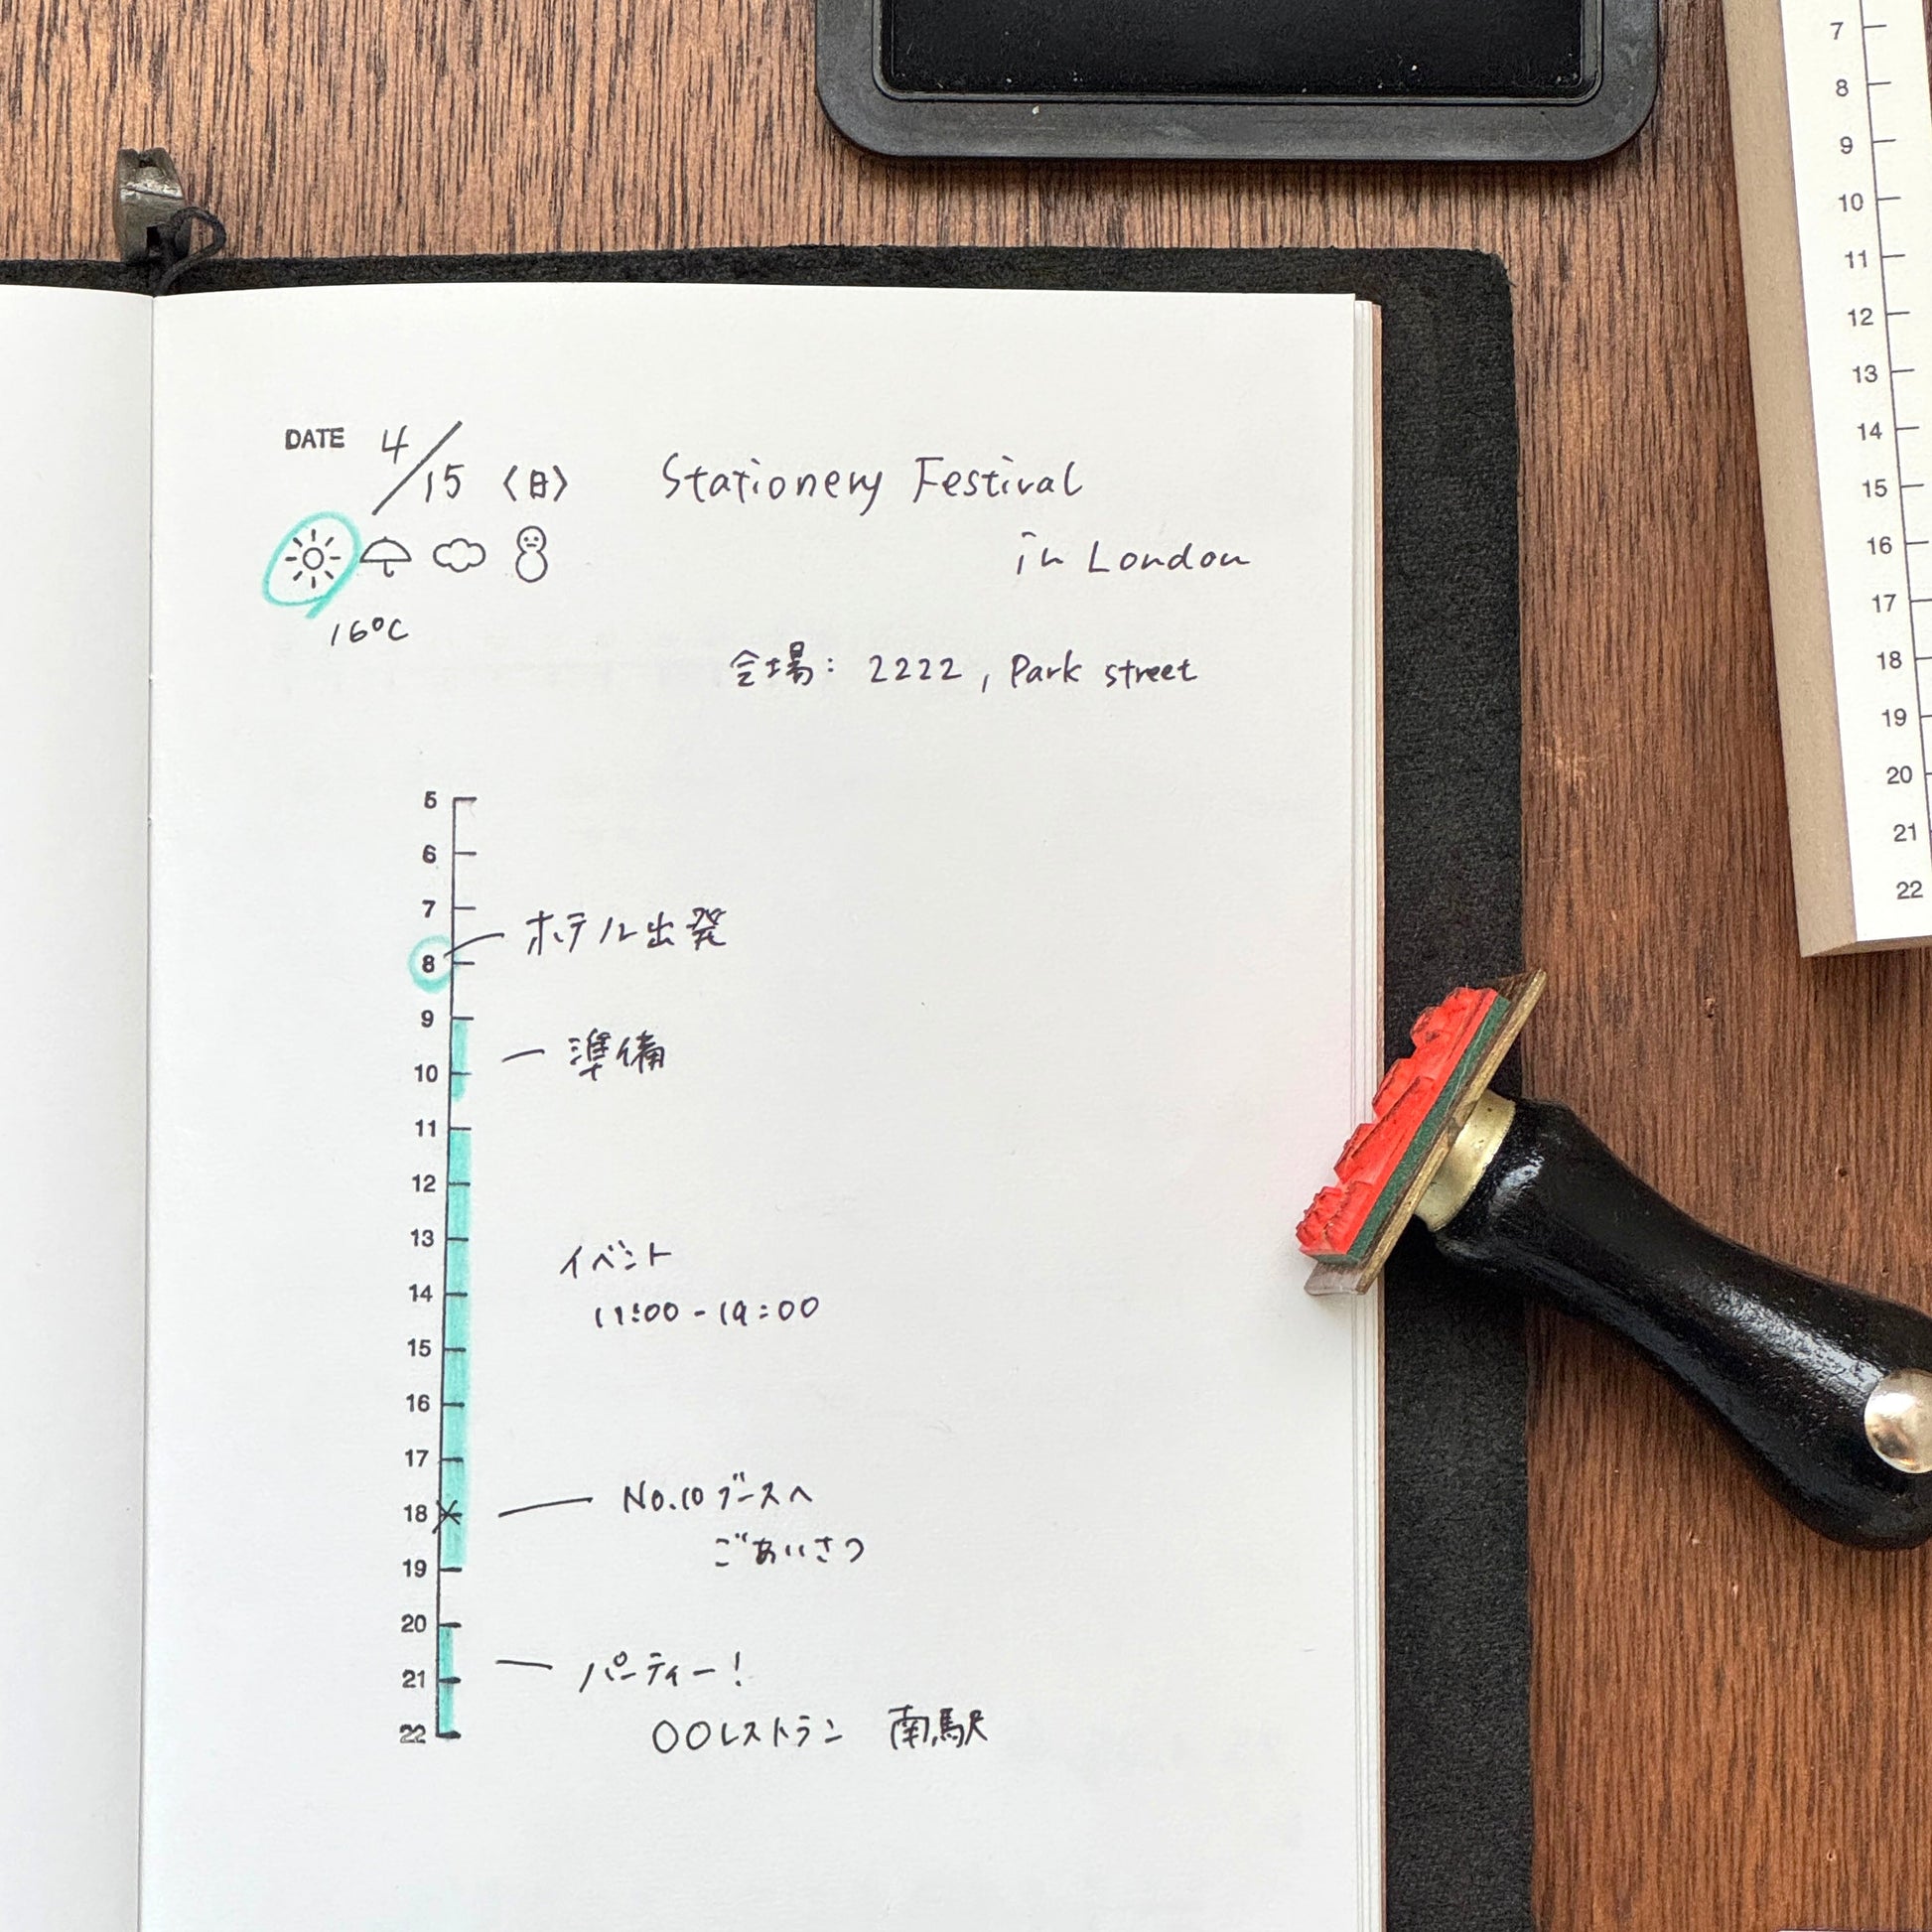 DATE 4/15 〈日〉 Stationery Festival
in London
16°C
会場: 2222, Park street
5
6
7
ホテル出発
8
9
準備
10
11
12
13
イベント
14
11:00 - 19:00
15
16
17
No.10 ブースへ
18
ごあいさつ
19
20
パーティー!
21
〇〇レストラン 南駅
22
7
8
9
10
11
12
13
14
15
16
17
18
19
20
21
22